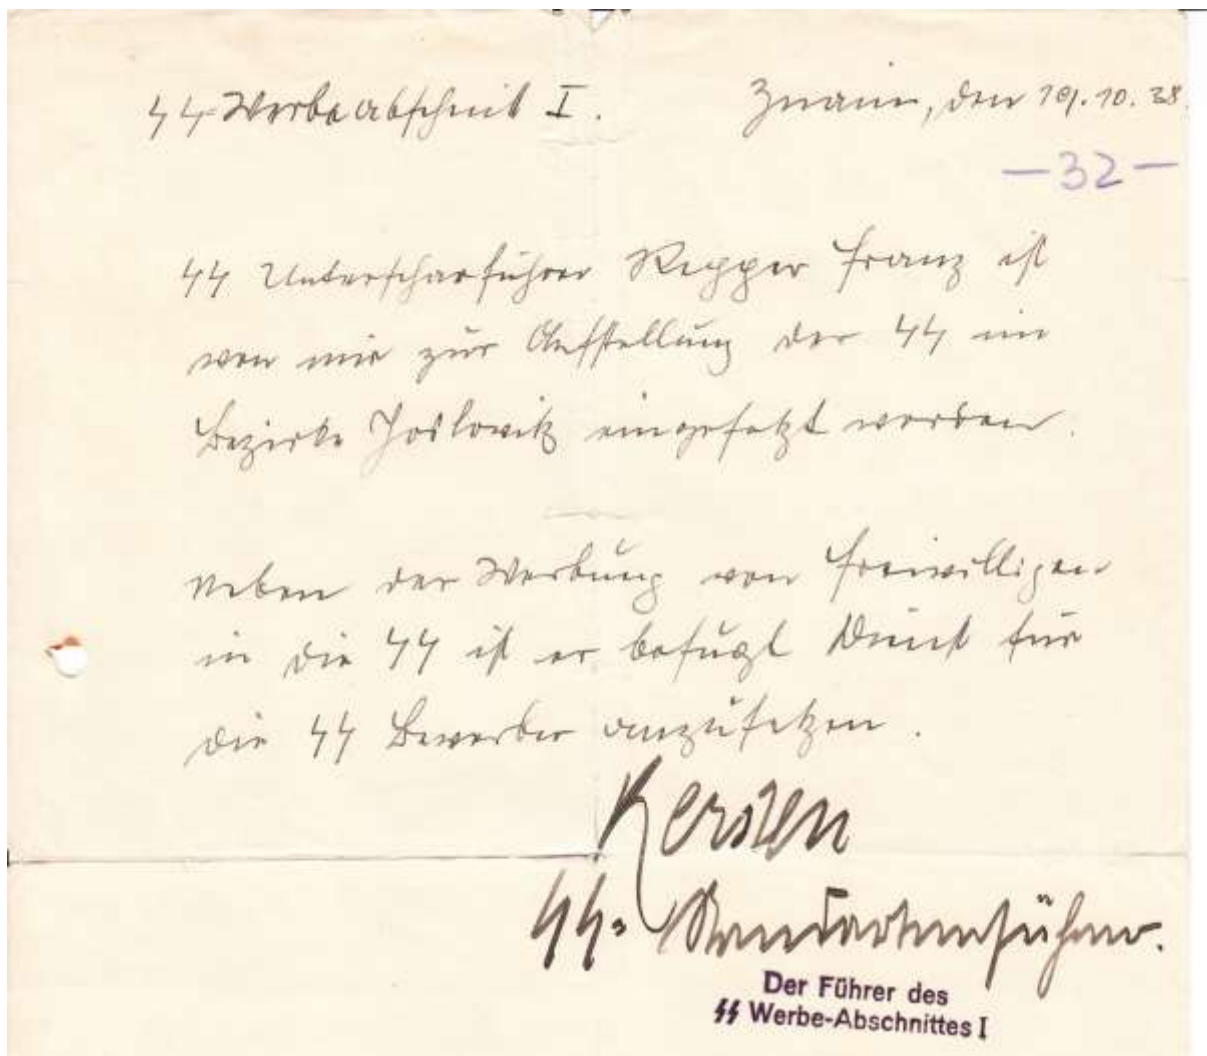 SS-Werbeabschnitt I. Znaim, den 19.10.38.
-32-
SS Unterscharführer Repper Franz ist
von mir zur Aufstellung der SS im
Bezirke Joslowitz eingesetzt worden.
Neben der Werbung von Freiwilligen
in die SS ist er befugt Dienst für
die SS Bewerber anzusetzen.
Kersten
SS-Standartenführer.
Der Führer des
SS Werbe-Abschnittes I